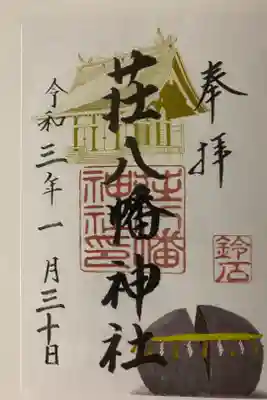 奉拝
荘八幡神社
令和三年一月三十日
荘八幡
神社印
鈴石